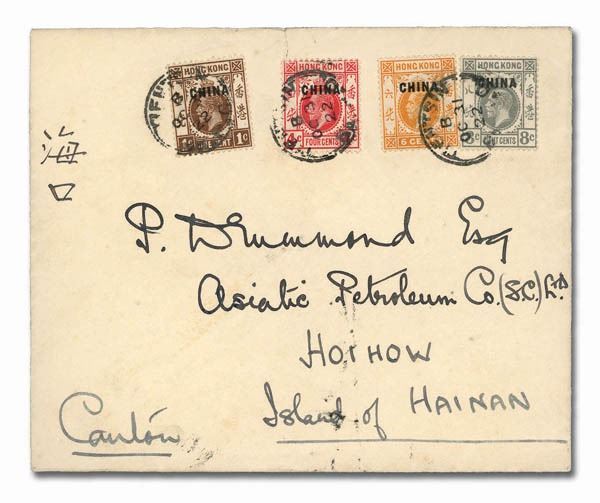 HONG KONG CHINA 1c
HONG KONG CHINA 4c FOUR CENTS
HONG KONG CHINA 6 CENTS
HONG KONG CHINA 8c EIGHT CENTS
TIENTSIN
OC 31
22
海口
P. Drummond Esq
Asiatic Petroleum Co. (S.C.) Ltd.
HOIHOW
Island of HAINAN
Canton